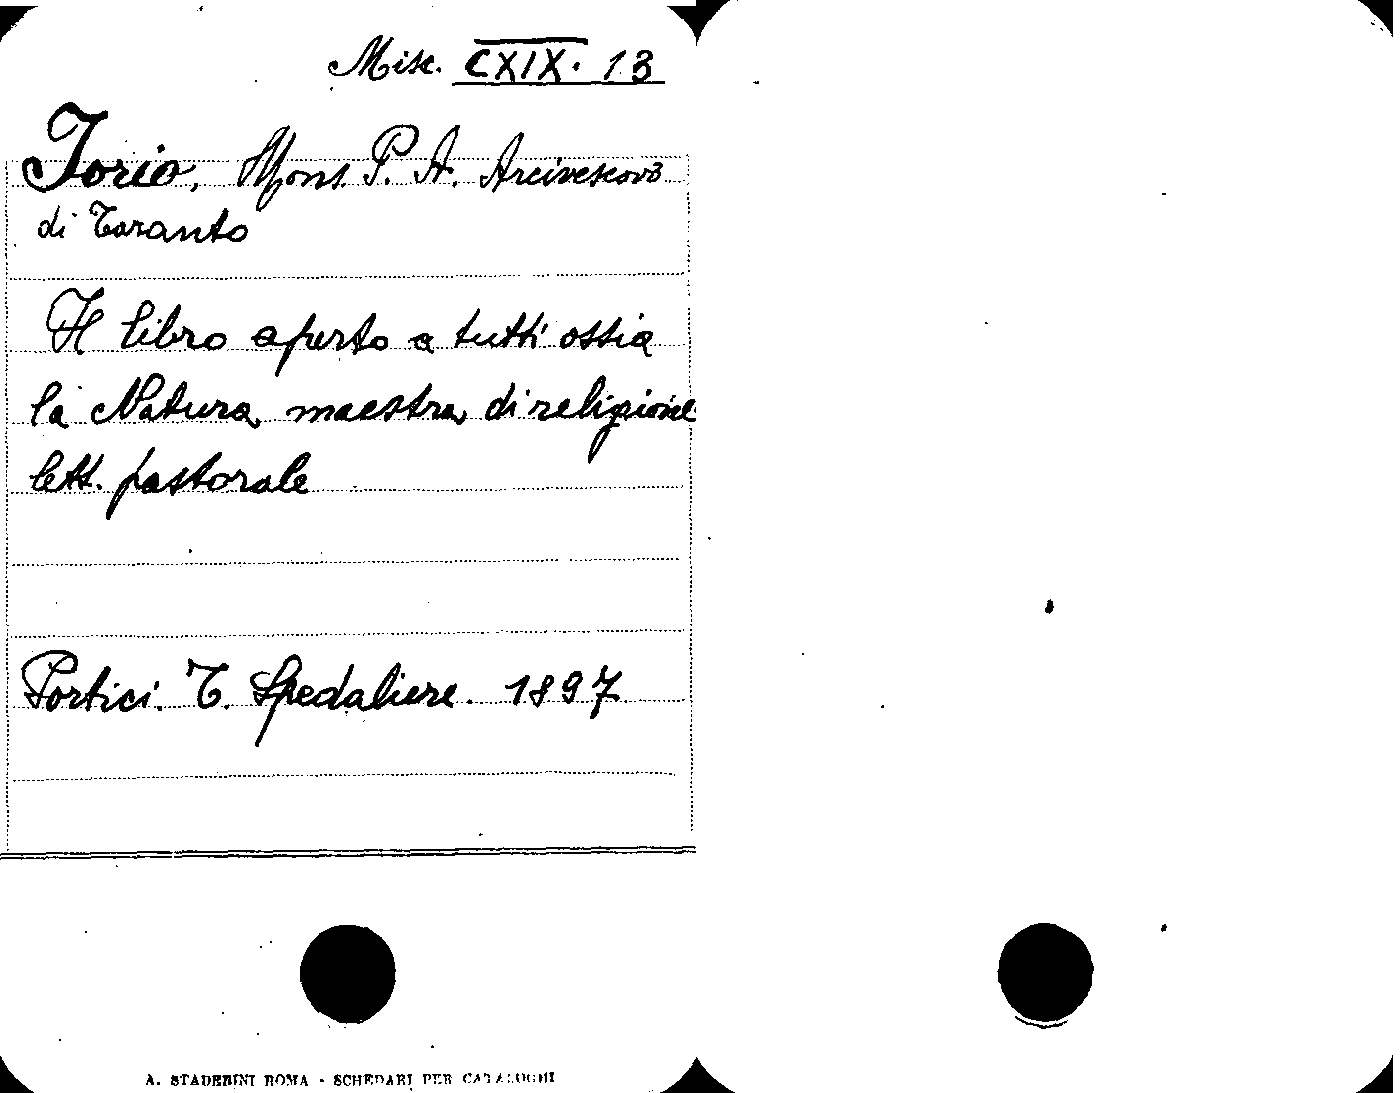 Misc. CXIX. 13
Jorio, Mons. P. A. Arcivescovo
di Taranto
Il libro aperto a tutti ossia
la Natura maestra di religione
lett. pastorale
Portici. T. Spedaliere. 1897
A. STADERINI ROMA - SCHEDARI PER CATALOGHI